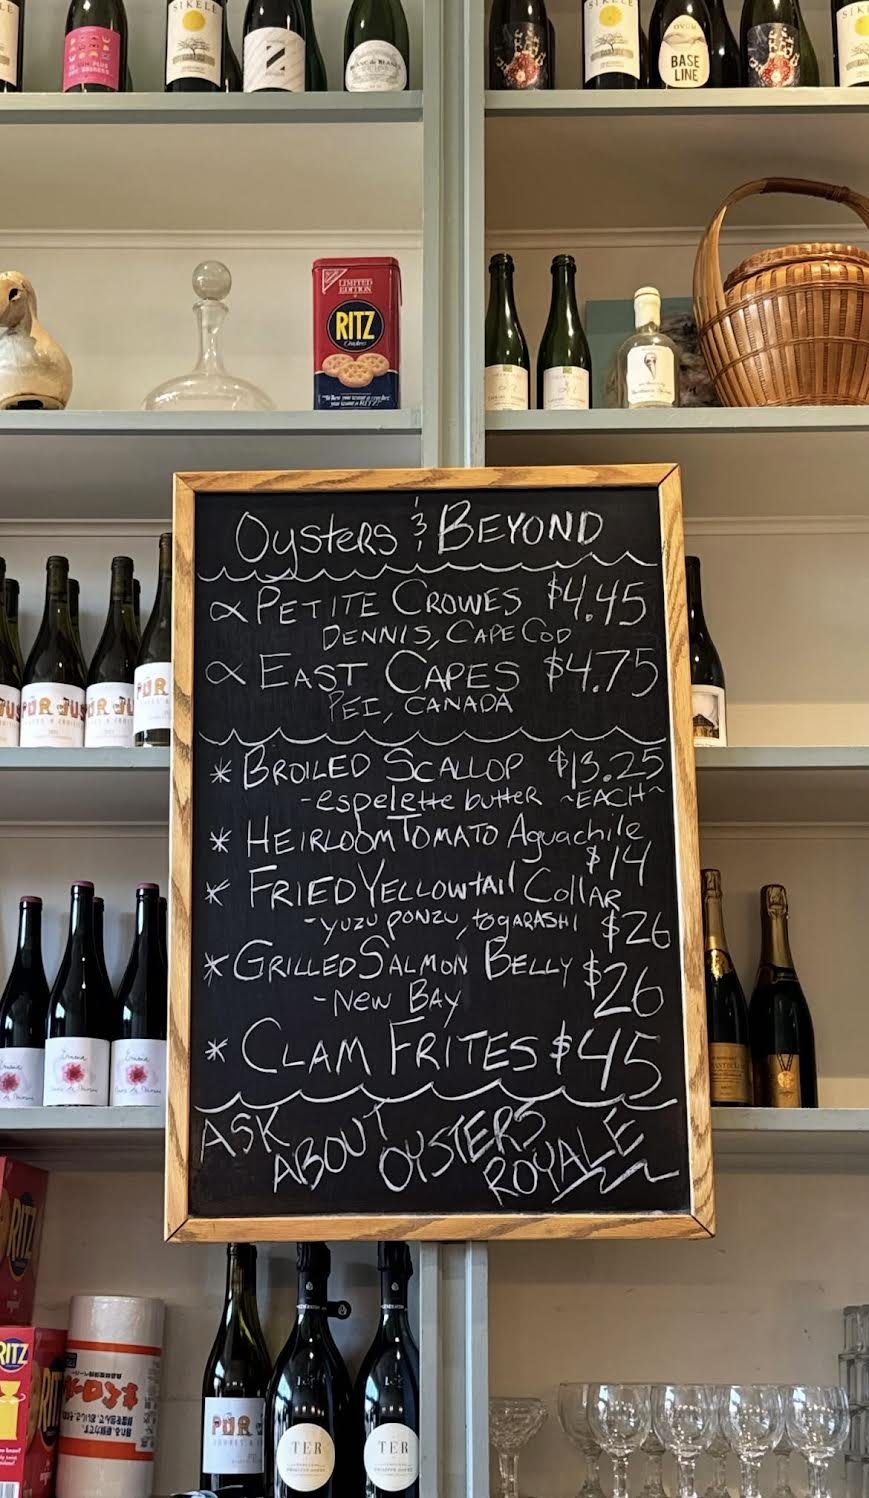 SIKELE
Z
BLANC de BLANCS
SIKELE
OVUM
BASE
LINE
LIMITED
EDITION
RITZ
Crackers
Oysters & BEYOND
∝ PETITE CROWES $4.45
DENNIS, CAPE COD
∝ EAST CAPES $4.75
PEI, CANADA
* BROILED SCALLOP $13.25
- espelette butter ~EACH~
* HEIRLOOM TOMATO Aguachile
$14
* FRIED YELLOWtail Collar
- yuzu ponzu, togARASHI $26
* GRILLED SALMON BELLY $26
- NEW BAY
* CLAM FRITES $45
ASK ABOUT OYSTERS ROYALE
PÜR JUS
RITZ
RITZ
PÜR
TER
TER